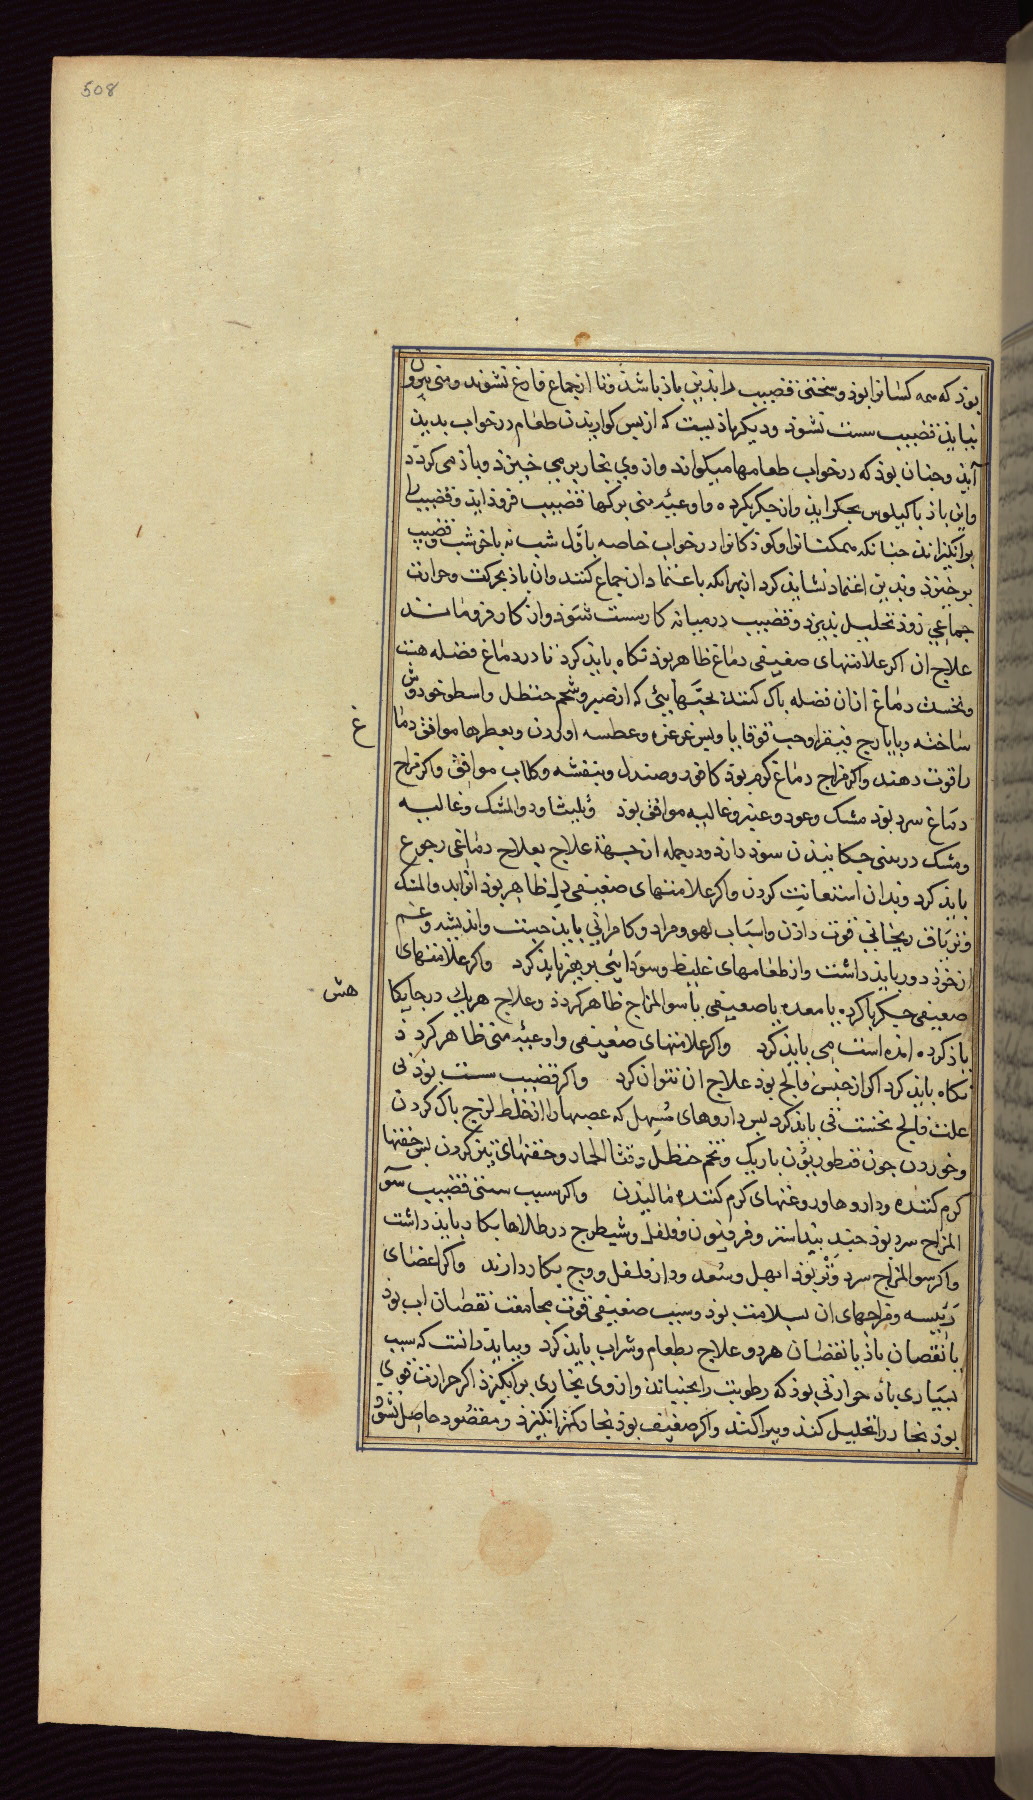 508
بوذ که همه کسانرا بوذ و سختی قضیب را بذین باذ باشذ و تا از جماع فارغ نشوند و منی بیرون
نیاید قضیب سست نشوذ و دیکر باذیست که از پس کواریذن طعام در خواب بدید
آیذ و جنان بوذ که در خواب طعامها میکوارد و از وی بخار برمی خیزذ و باذ می کردد
و این باذ با کیلوس بجکر ایذ و از جکر بکرده و اوعیه منی برکها قضیب فروذ ایذ و قضیب را
بر انکیزاند جنانکه و کوذکانرا در خواب خاصه باول شب نه باخر شب و قضیب
برخیزذ و بذین اعتماد نشایذ کرد از بهر انکه باعتماد ان جماع کنند و ان باذ بحرکت و حرارت
جماعی زوذ تحلیل پذیرد و قضیب در میانه کار سست شوذ و از کار فرو ماند
علاج ان اکر علامتهای ضعیفی دماغ ظاهر بوذ نکاه بایذ کرد تا در دماغ فضله هست
و نخست دماغ ازان فضله باک کنند بحبهایی که از صبر و شحم حنظل و اسطوخودوش
ساخته و بایارج فیقرا و حب قوقایا و بس غرغره و عطسه اوردن و بعطرها موافق دما
غ
را قوت دهند و اکر مزاج دماغ کرم بوذ کافور و صندل و بنفشه و کلاب موافق و اکر مزاج
دماغ سرد بوذ مشک و عود و عنبر و غالیه موافق بوذ و ثلیثا و دوالمشک و غالیه
و مشک در بینی جکانیذن سوذ دارذ و در جمله از جهة علاج بعلاج دماغی رجوع
بایذ کرد و بدان استعانت کردن و اکر علامتهای ضعیفی دل ظاهر بوذ دوالمشک
و تریاق قوت داذن و اسباب لهو و مراد و کامرانی بایذ جست و اندیشه و غم
از خوذ دور بایذ داشت و از طعامهای غلیظ و سودایی پرهیز بایذ کرد و اکر علامتهای
ضعیفی جکر یا کرده یا معده یا ضعیفی یا سوالمزاج ظاهر کردذ و علاج هر یک در جایکا
هش
یاذ کرده امده است می بایذ کرد و اکر علامتهای ضعیفی و اوعیه منی ظاهر کرد ذ
نکاه بایذ کرد اکر از جنس فالج بوذ علاج ان نتوان کرد و اکر قضیب سست بوذ بی
علت فالج نخست قی بایذ کرد بس داروهای مسهل که عصبها را از خلط لزج باک کردن
و خوردن جون قنطوریون باریک و تخم حنظل و قثا الحمار و حقنهای تیز کردن بس حقنها
کرم کننده و داروها و روغنهای کرم کننده مالیذن و اکر سبب سستی قضیب سو
المزاج سرد بوذ جند بیداستر و فرفیون و فلفل و شیطرج در طلاها بکار بایذ داشت
و اکر سوالمزاج سرد و تر بوذ ابهل و سعد و دارفلفل و وج بکار دارند و اکر اعضای
رئیسه و مزاجهای ان بسلامت بوذ و سبب ضعیفی قوت مجامعت نقصان اب بوذ
یا نقصان باذ یا نقصان هر دو علاج بطعام و شراب بایذ کرد و ببایذ دانست که سبب
بسیاری باد حرارتی بوذ که رطوبت را بجنباند و از وی بخاری برانکیزذ اکر حرارت قوی
بوذ بخار را تحلیل کند و بپراکند و اکر ضعیف بوذ بخار کمتر انکیزذ و مقصود حاصل نشود